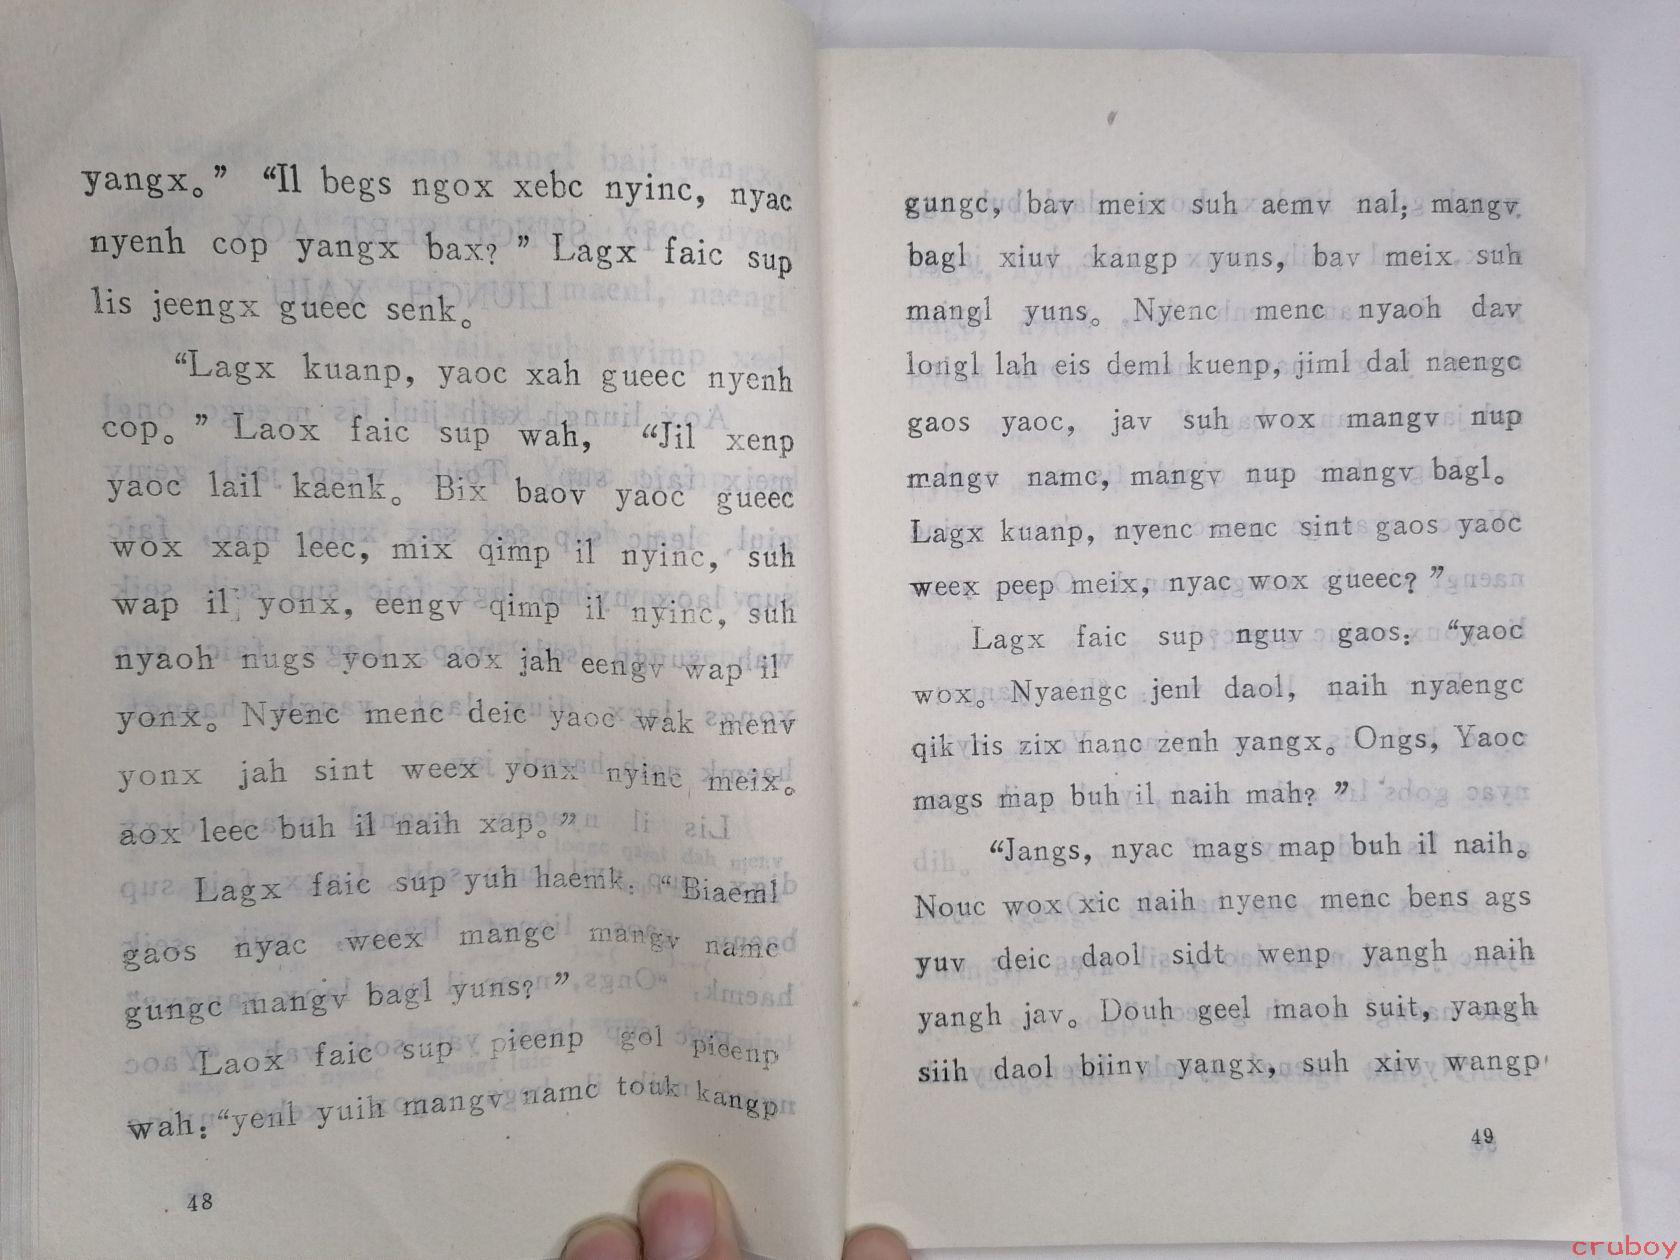 yangx。” “Il begs ngox xebc nyinc, nyac
nyenh cop yangx bax? ” Lagx faic sup
lis jeengx gueec senk。
“Lagx kuanp, yaoc xah gueec nyenh
cop。 ” Laox faic sup wah, “Jil xenp
yaoc lail kaenk。 Bix baov yaoc gueec
wox xap leec, mix qimp il nyinc, suh
wap il yonx, eengv qimp il nyinc, suh
nyaoh nugs yonx aox jah eengv wap il
yonx。 Nyenc menc deic yaoc wak menv
yonx jah sint weex yonx nyinc meix。
aox leec buh il naih xap。”
Lagx faic sup yuh haemk: “Biaeml
gaos nyac weex mange mangv namc
gungc mangv bagl yuns? ”
Laox faic sup pieenp gol pieenp
wah: “yenl yuih mangv namc touk kangp
48
gungc, bav meix suh aemv nal; mangv
bagl xiuv kangp yuns, bav meix suh
mangl yuns。 Nyenc menc nyaoh dav
longl lah eis deml kuenp, jiml dal naengc
gaos yaoc, jav suh wox mangv nup
mangv namc, mangv nup mangv bagl。
Lagx kuanp, nyenc menc sint gaos yaoc
weex peep meix, nyac wox gueec? ”
Lagx faic sup nguv gaos: “yaoc
wox。 Nyaengc jenl daol, naih nyaengc
qik lis zix nanc zenh yangx。 Ongs, Yaoc
mags map buh il naih mah? ”
“Jangs, nyac mags map buh il naih。
Nouc wox xic naih nyenc menc bens ags
yuv deic daol sidt wenp yangh naih
yangh jav。 Douh geel maoh suit, yangh
siih daol biinv yangx, suh xiv wangp
49
cruboy